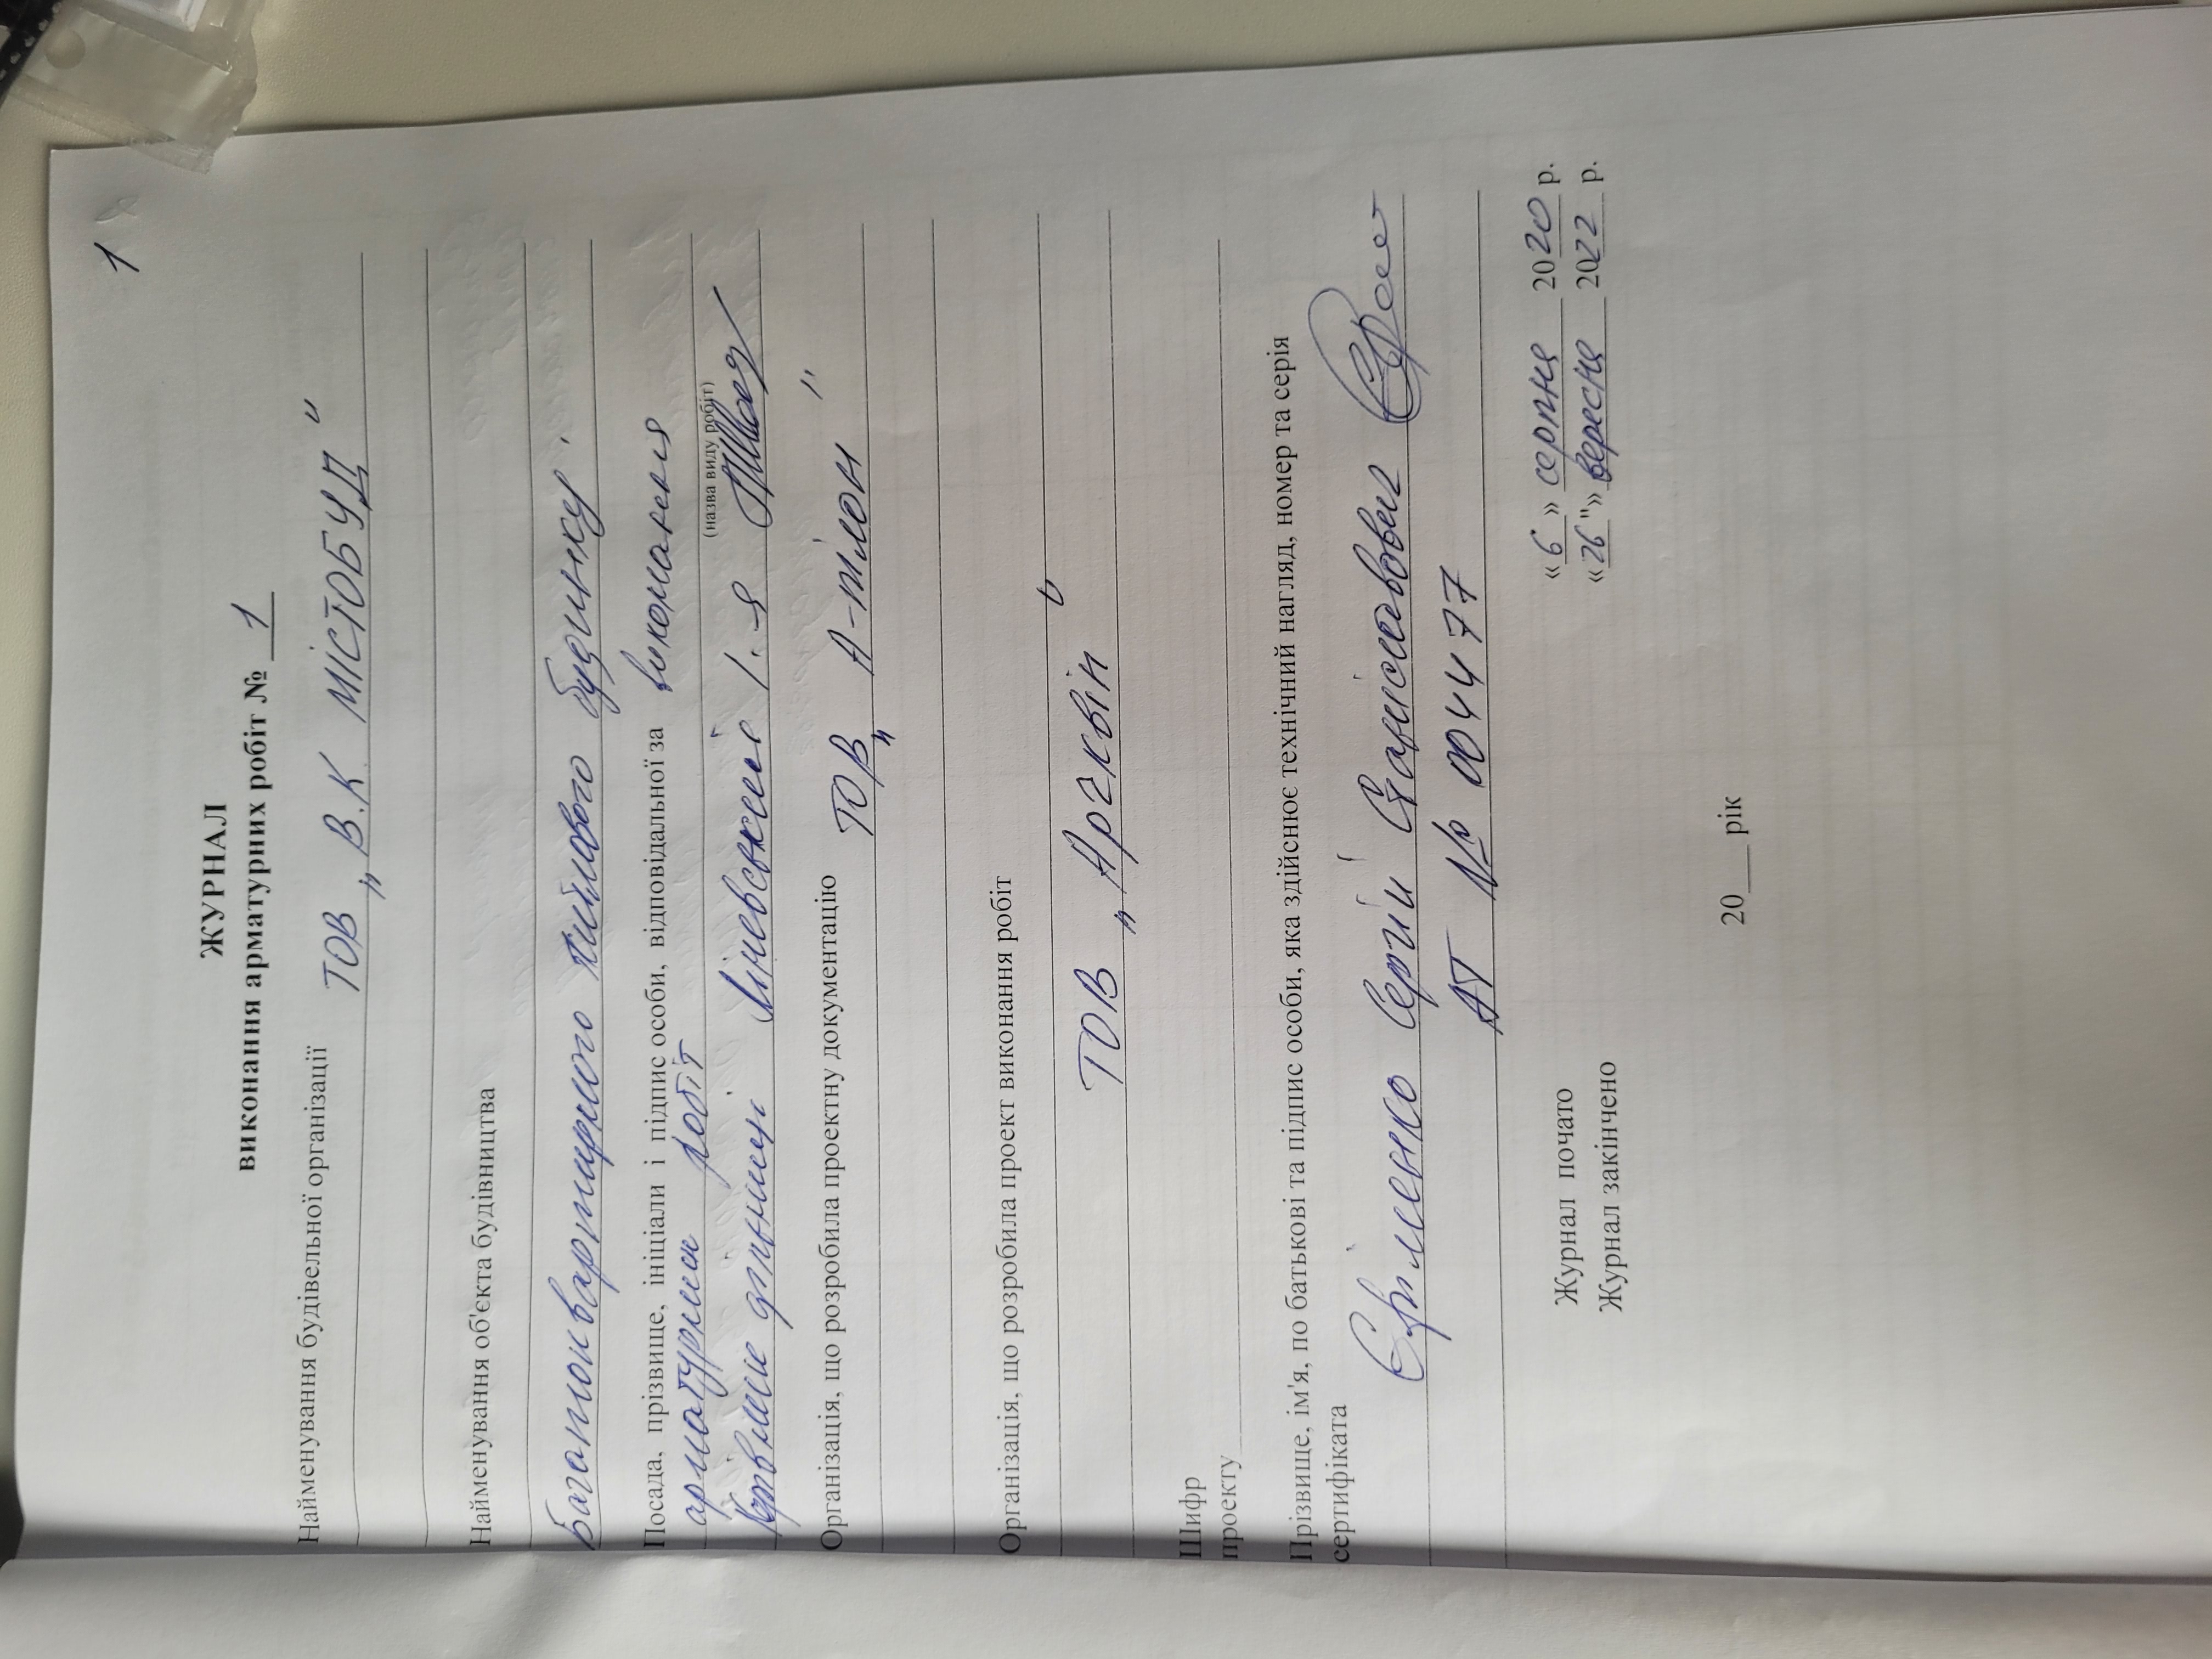 1
ЖУРНАЛ
виконання арматурних робіт № 1
Найменування будівельної організації
ТОВ „В.К МІСТОБУД"
Найменування об'єкта будівництва
Багатоквартирного житлового будинку.
Посада, прізвище, ініціали і підпис особи, відповідальної за виконання
арматурних робіт
(назва виду робіт)
дільниці І. Я
Організація, що розробила проектну документацію
ТОВ „А-тілон"
Організація, що розробила проект виконання робіт
ТОВ „Аргквін"
Шифр
проекту
Прізвище, ім'я, по батькові та підпис особи, яка здійснює технічний нагляд, номер та серія
сертифіката
Єфіменко Сергій Станіславович
АТ № 004477
Журнал почато «6» серпня 2020 р.
Журнал закінчено «26"» вересня 2022 р.
20___рік